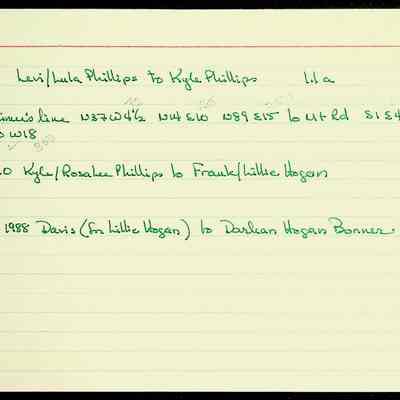 Levi/Lula Phillips to Kyle Phillips 1.1 a
line N37W4½ N14 E10 N89 E15 to Mt Rd S1 E4
W18
Kyle/Rosalee Phillips to Frank/Lillie Hogan
1988 Davis (for Lillie Hogan) to Darlean Hogan Bonner